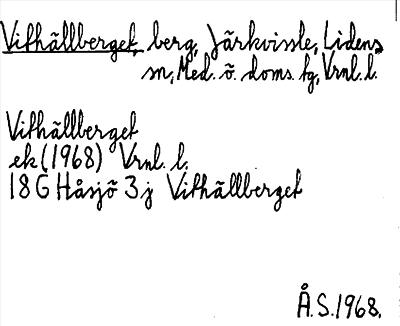 Vithällberget, berg, Järkvissle, Lidens
sn, Med. ö. doms. tg, Vrnl. l.
Vithällberget
ek (1968) Vrnl. l.
18 G Håsjö 3 j Vithällberget
Å.S. 1968.